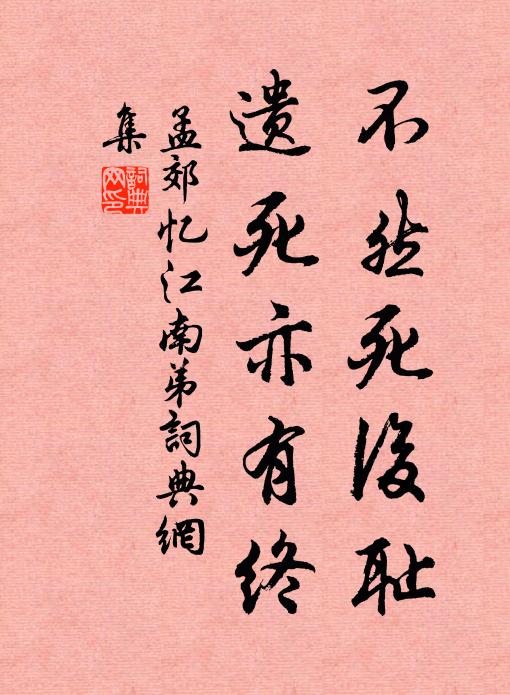 不然死後耻
遗死亦有终
孟郊忆江南弟詞典網
集
詞典网印